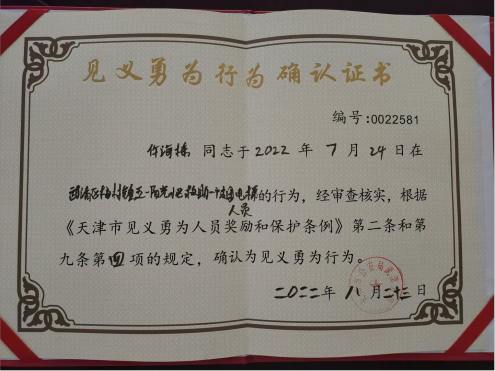 见义勇为行为确认证书
编号:0022581
同志于2022年7月24日在
的行为,经审查核实,根据
人员
《天津市见义勇为人员奖励和保护条例》第二条和第
九条第四项的规定,确认为见义勇为行为。
二〇二二年八月二十三日